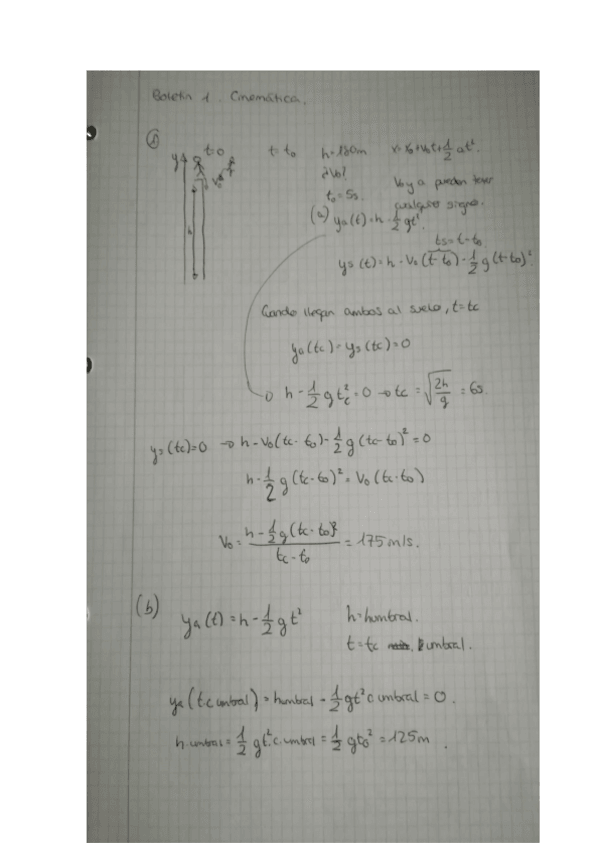 Boletín 1. Cinemática.
①
t=0
t=t₀
h=180m
x=x₀+v₀t+½at²
y
V₀
¿V₀?
h
t₀=5s.
V₀ y a pueden tener
cualquier signo.
(a) yₐ(t)=h-½gt²
ts=t-t₀
ys(t)=h-V₀(t-t₀)-½g(t-t₀)²
Cando llegan ambos al suelo, t=tc
ya(tc)=ys(tc)=0
h-½gtc²=0 → tc=√(2h/g)=6s
ys(tc)=0 → h-V₀(tc-t₀)-½g(tc-t₀)²=0
h-½g(tc-t₀)²=V₀(tc-t₀)
V₀=(h-½g(tc-t₀)²)/(tc-t₀)=175m/s.
(b)
ya(t)=h-½gt²
h=humbral.
t=tc umbral.
ya(tc umbral)=humbral-½gt²c umbral=0.
h umbral=½gt²c.umbral=½gt₀²=125m.